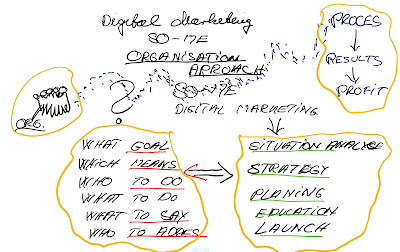 Digital Marketing
SO-ME
ORGANISATION
APROACH
SO-ME
DIGITAL MARKETING
PROCES
RESULTS
PROFIT
ORG.
?
WHAT GOAL
WHICH MEANS
WHO TO DO
WHAT TO DO
WHAT TO SAY
WHO TO ADRES
SITUATION ANALYSE
STRATEGY
PLANING
EDUCATION
LAUNCH